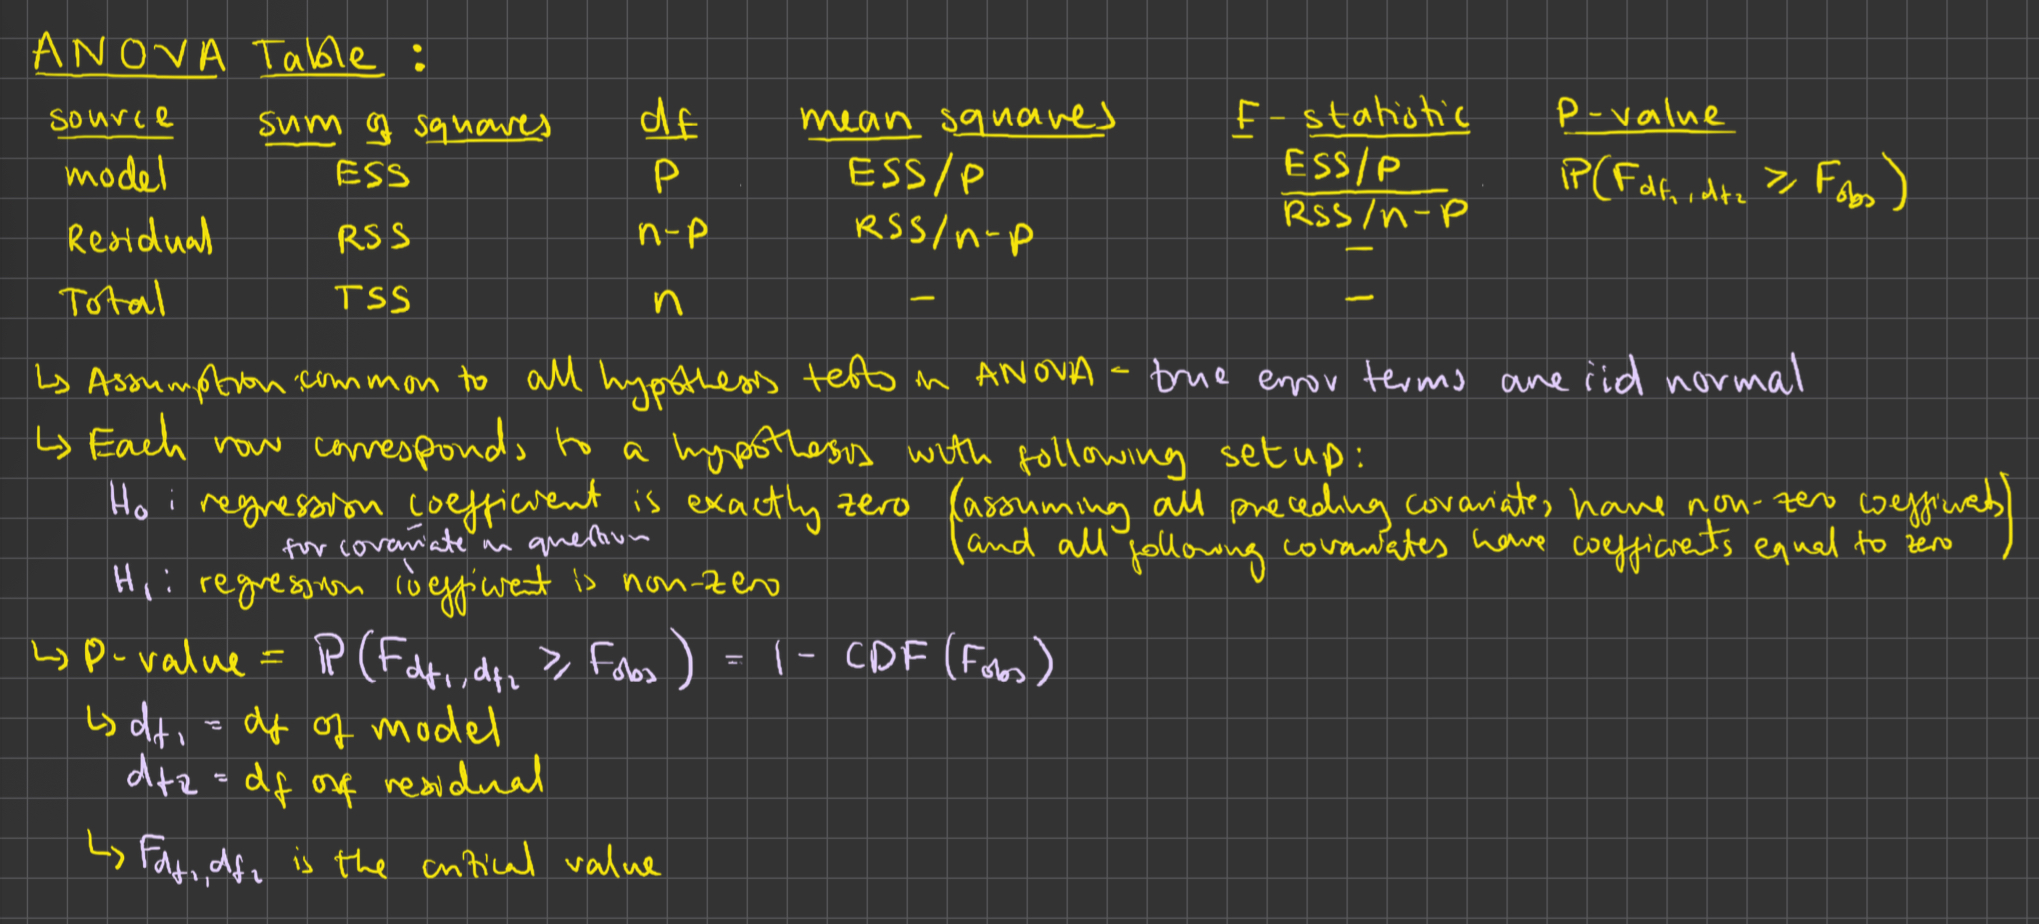 ANOVA Table :
source sum of squares df mean squares F-statistic P-value
model ESS P ESS/P ESS/P ℙ(F df₁,df₂ ≥ F obs)
RSS/n-P
Residual RSS n-P RSS/n-P –
Total TSS n – –
↳ Assumption common to all hypothesis tests in ANOVA - true error terms are iid normal
↳ Each row corresponds to a hypothesis with following setup:
H₀ : regression coefficient is exactly zero (assuming all preceding covariates have non-zero coefficients
for covariate in question and all following covariates have coefficients equal to zero)
H₁ : regression coefficient is non-zero
↳ P-value = ℙ(F df₁,df₂ ≥ F obs) = 1 - CDF(F obs)
↳ df₁ = df of model
df2 = df of residual
↳ F df₁,df₂ is the critical value